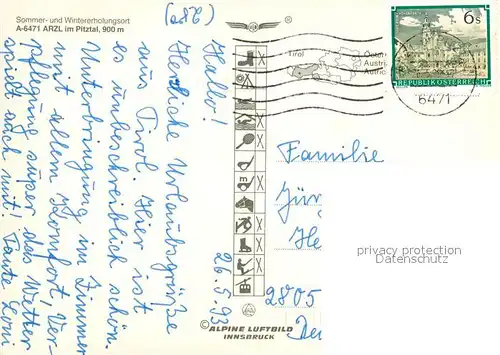 Sommer- und Wintererholungsort
A-6471 ARZL im Pitztal, 900 m
(o82)
Hallo!
Herzliche Urlaubsgrüße
aus Tirol. Hier ist
es unbeschreiblich schön.
Unterbringung im Zimmer
mit allem Komfort, Ver-
pflegung super das Wetter
spielt auch mit! Tante Loni
26.5.93
Tirol
6s
REPUBLIK ÖSTERREICH
6471
Familie
Jür
He
2805
privacy protection
Datenschutz
© ALPINE LUFTBILD
INNSBRUCK